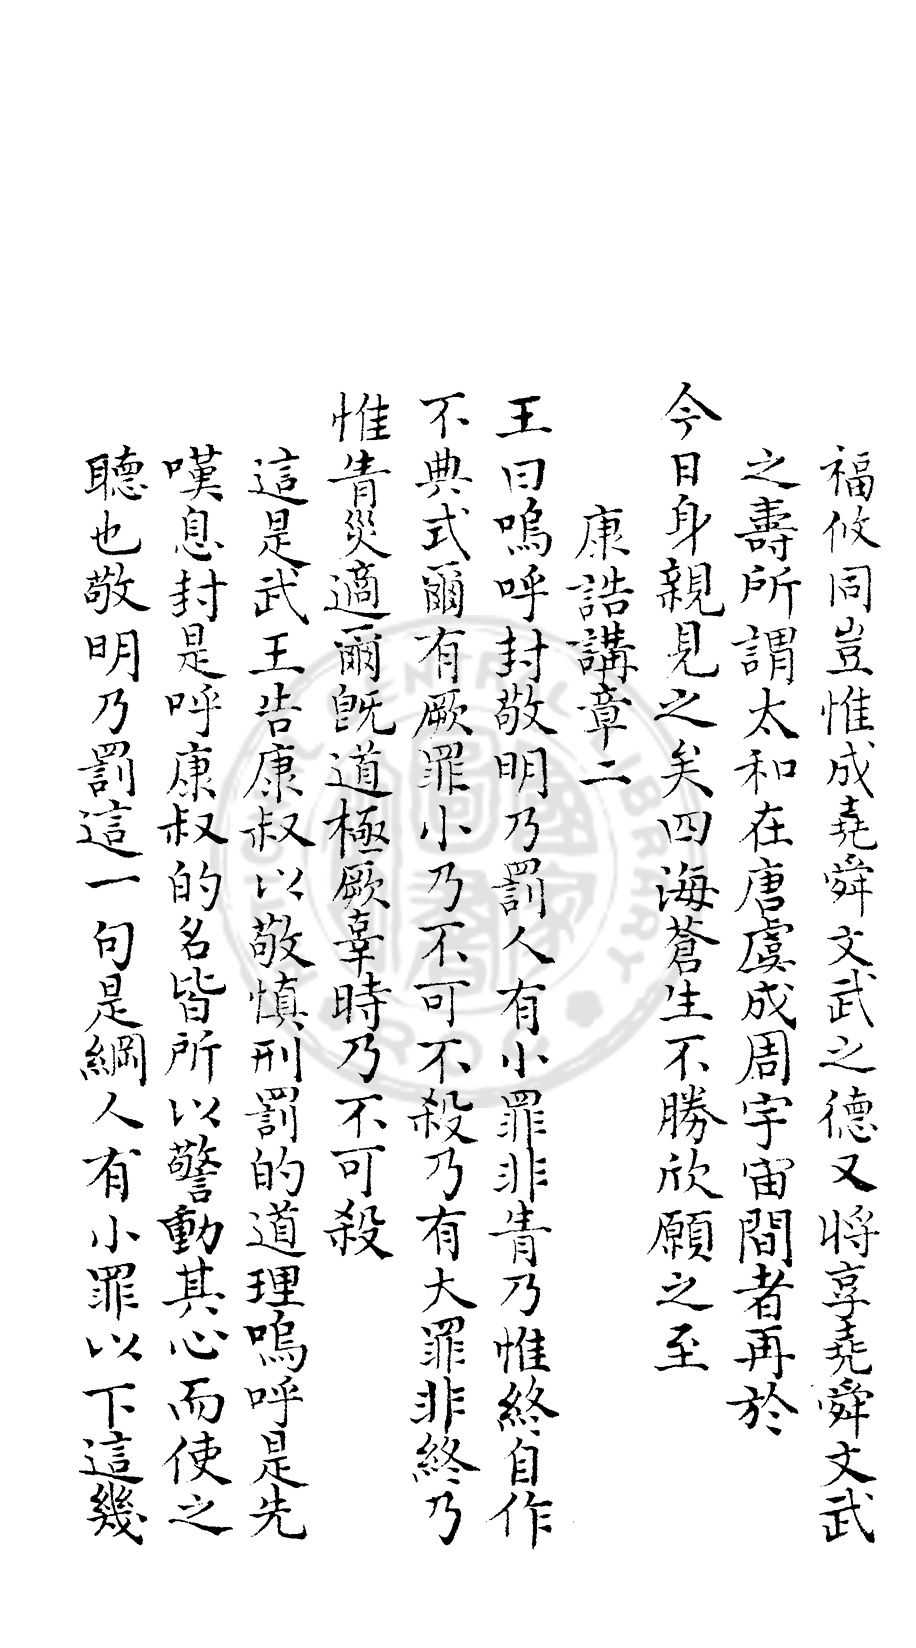 福攸同豈惟成堯舜文武之德又將享堯舜文武
之壽所謂太和在唐虞成周宇宙間者再於
今日身親見之矣四海蒼生不勝欣願之至
康誥講章二
王曰嗚呼封敬明乃罰人有小罪非眚乃惟終自作
不典式爾有厥罪小乃不可不殺乃有大罪非終乃
惟眚災適爾旣道極厥辜時乃不可殺
這是武王告康叔以敬慎刑罰的道理嗚呼是先
嘆息封是呼康叔的名皆所以警動其心而使之
聽也敬明乃罰這一句是綱人有小罪以下這幾